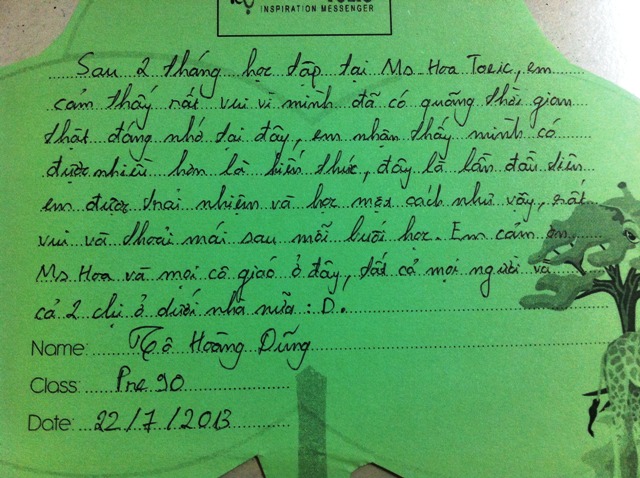 INSPIRATION MESSENGER
Sau 2 tháng học tập tại Ms Hoa Toeic, em
cảm thấy rất vui vì mình đã có quãng thời gian
thật đáng nhớ tại đây, em nhận thấy mình có
được nhiều hơn là kiến thức, đây là lần đầu tiên
em được trải nhiệm và học một cách như vậy, rất
vui và thoải mái sau mỗi buổi học. Em cảm ơn
Ms Hoa và mọi cô giáo ở đây, tất cả mọi người và
cả 2 chị ở dưới nhà nữa : D.
Name: Tô Hoàng Dũng
Class: Pre 90
Date: 22/7/2013